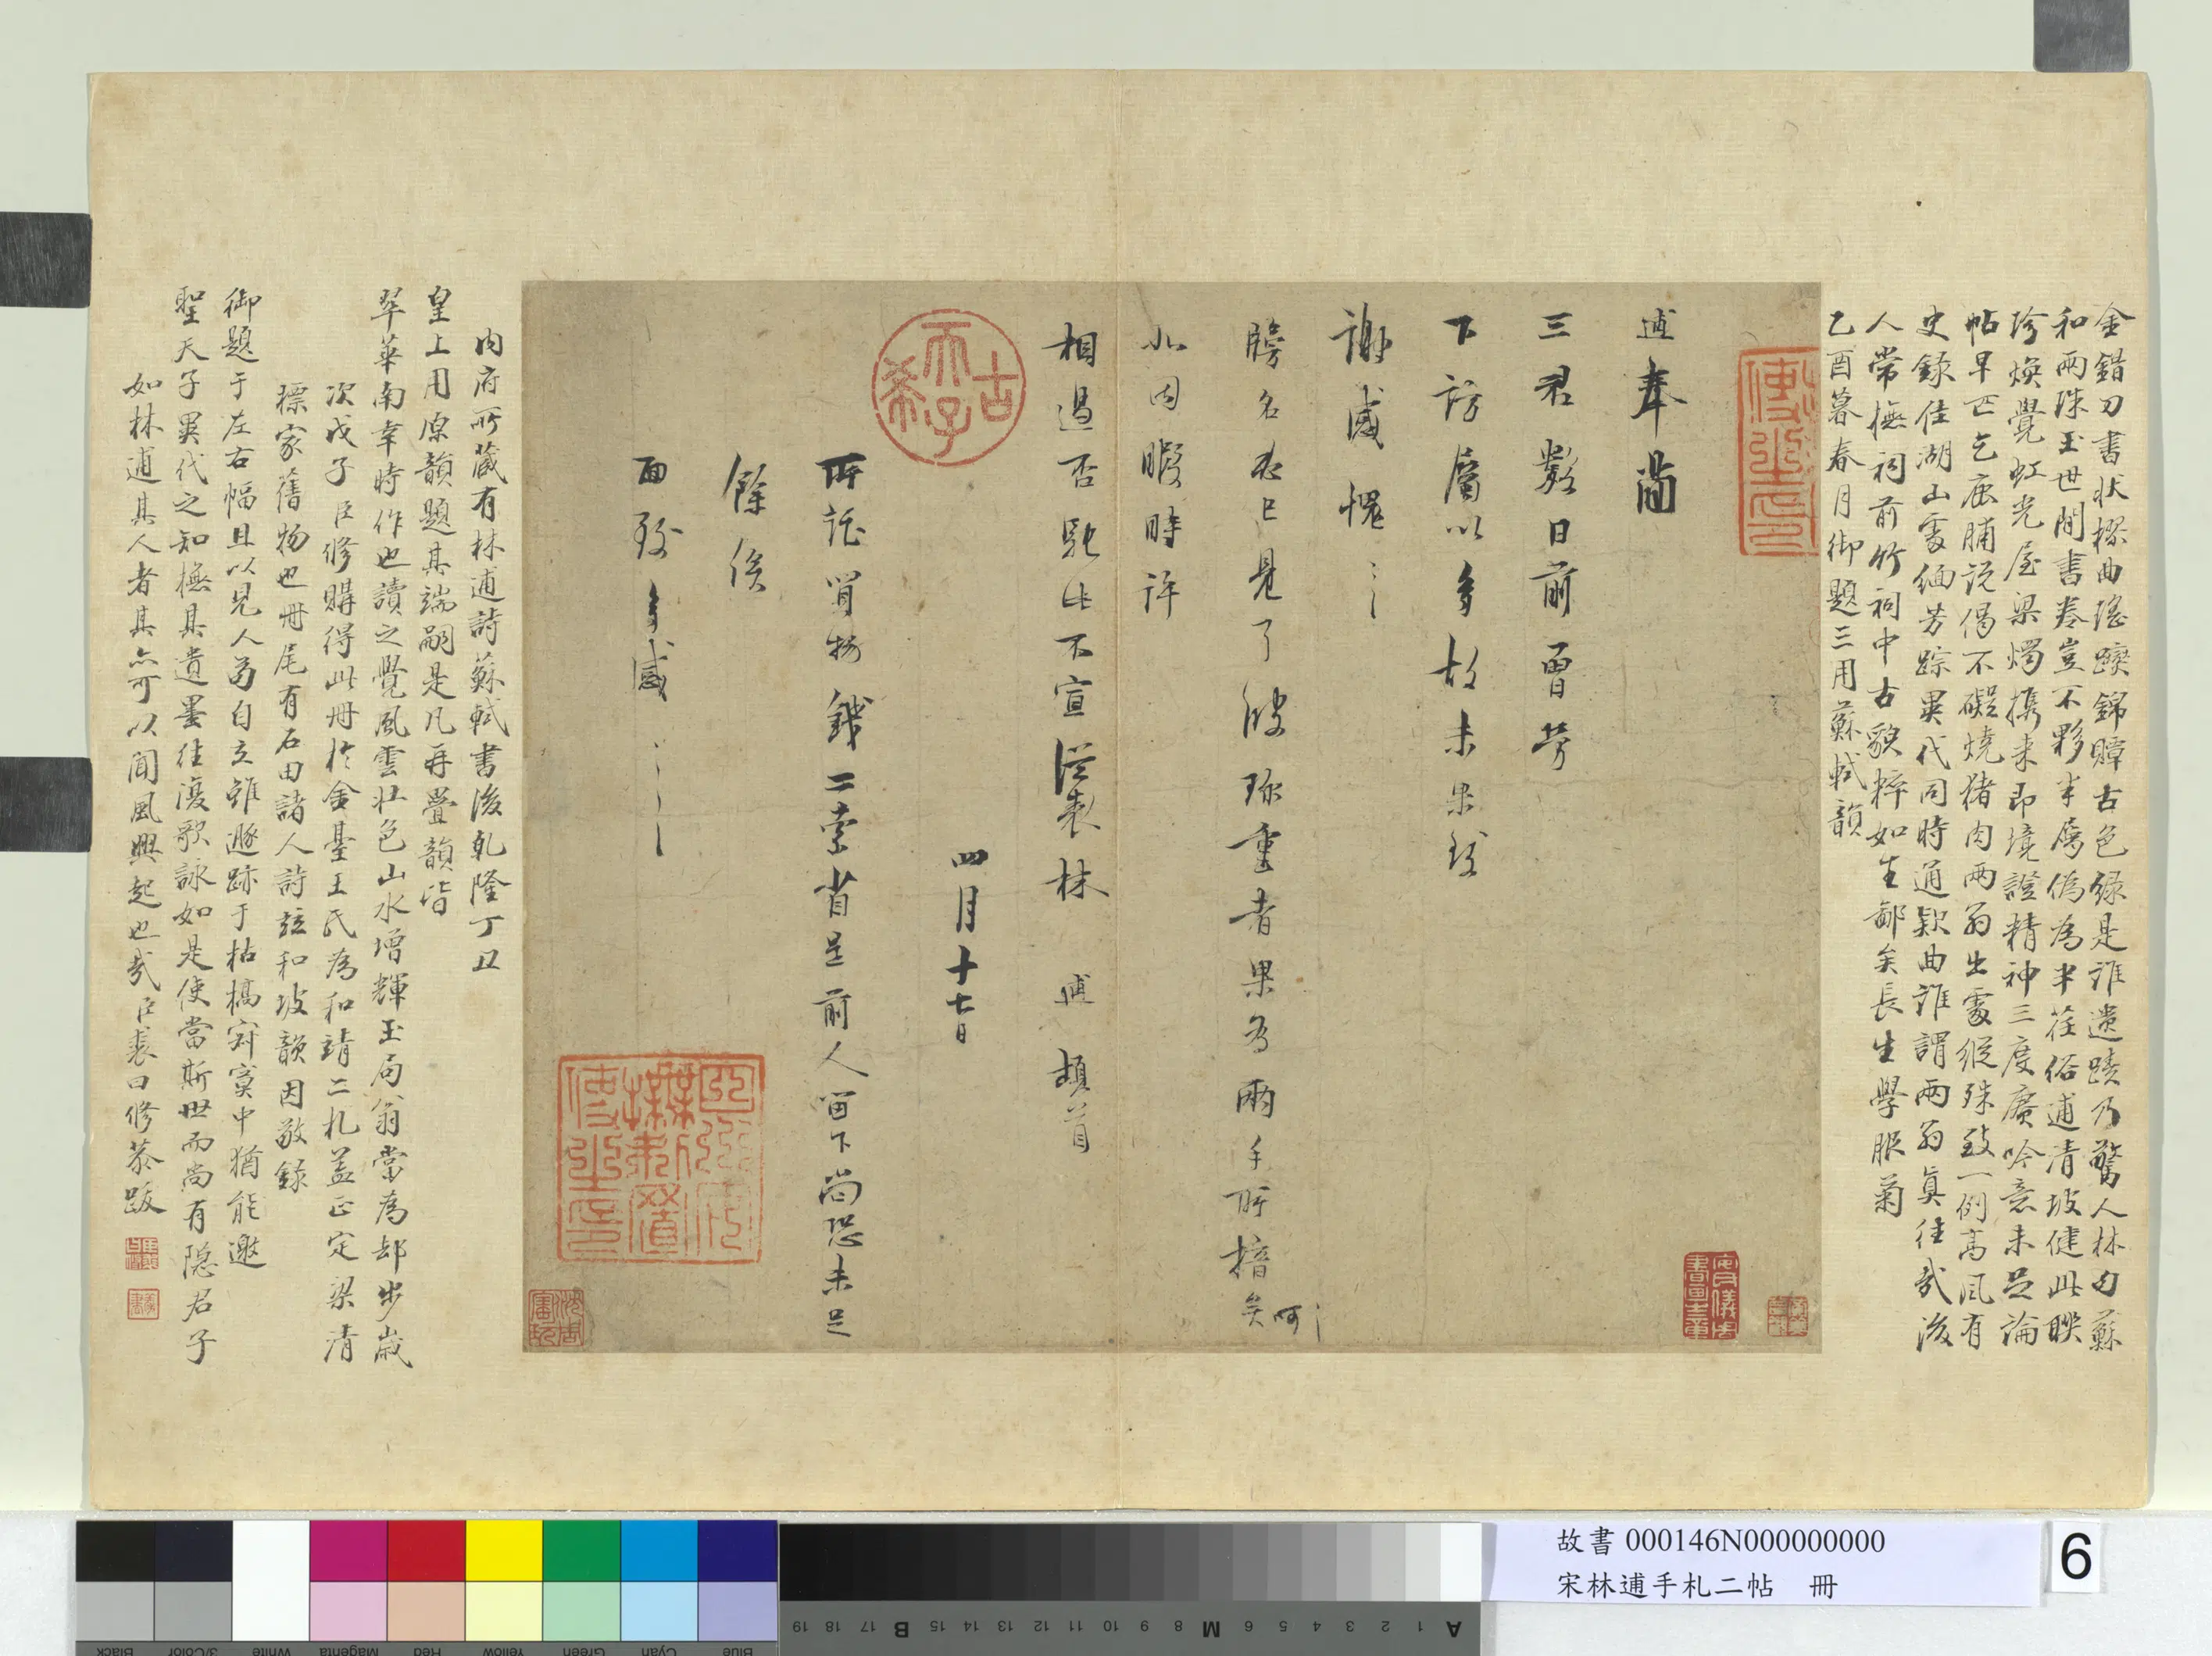 金錯刀書狀㯠曲瑤躞錦贉古色綠是誰遺蹟乃驚人林句蘇
和兩珠玉世間書卷豈不夥半屬偽為半荏俗逋清坡健此聯
珍煥覺虹光屋梁燭攜來即境證精神三度賡吟意未足論
帖早亡乞鹿脯說偈不礙燒猪肉兩翁出處縱殊致一例高風有
史錄住湖山處緬芳踪異代同時通款曲誰謂兩翁真往哉後
人常撫祠前竹祠中古貌粹如生鄙矣長生學服菊
乙酉暮春月御題三用蘇軾韻
逋奉簡
三君數日前曾勞
下訪屬以多故未果致
謝感愧〻〻
牓名次已見了彼珎重者果為兩手所揞矣呵〻
非因暇時許
相過否馳此不宣從表林 逋 頓首
四月十七日
所託買物錢二索省是前人留下尚恐未足
餘俟
面致多感〻〻〻
內府所藏有林逋詩蘇軾書後乾隆丁丑
皇上用原韻題其端嗣是凡再疊韻皆
翠華南幸時作也讀之覺風雲壯色山水增輝玉局翁當為却步歲
次戊子臣修購得此冊於金臺王氏為和靖二札蓋正定梁清
標家舊物也冊尾有石田諸人詩竝和坡韻因敬錄
御題于左右幅且以見人苟自立雖遯跡于枯槁寂寞中猶能邀
聖天子異代之知撫其遺墨往復歌詠如是使當斯世而尚有隱君子
如林逋其人者其亦可以聞風興起也哉臣裘曰修恭跋
古希天子
安儀周書畫之章
故書 000146N000000000
宋林逋手札二帖 冊
6
Black
3/Color
White
Magenta
Red
Yellow
Green
Cyan
Blue
A 1 2 3 4 5 6 M 8 9 10 11 12 13 14 15 B 17 18 19